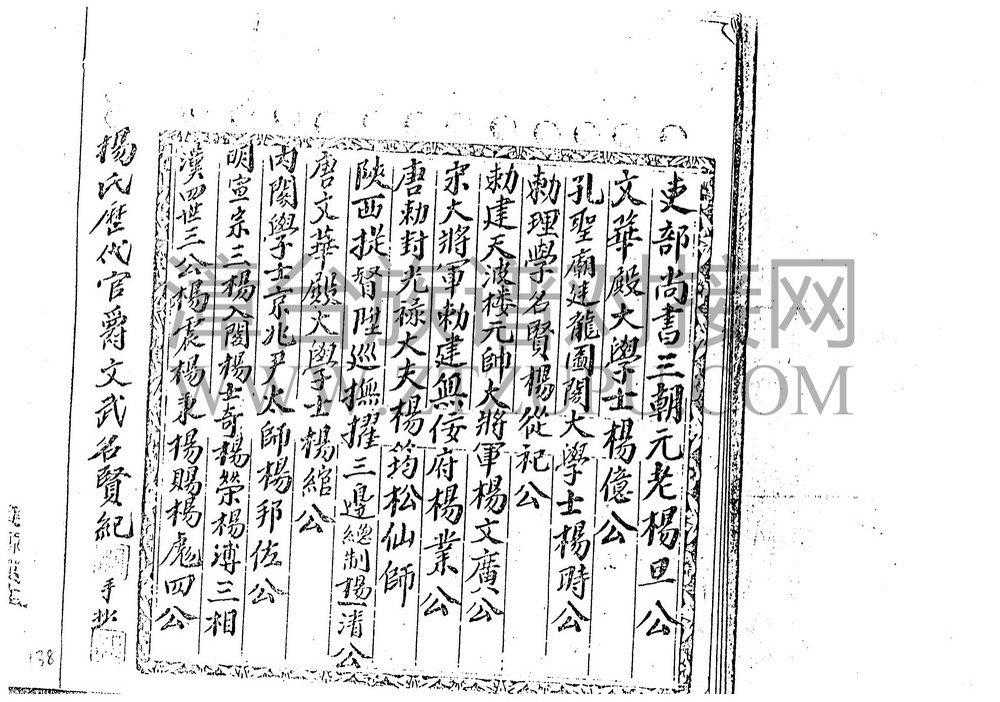 吏部尚書三朝元老楊旦公
文華殿大學士楊億公
孔聖廟廷龍圖閣大學士楊時公
勅理學名賢楊從祀公
勅建天波楼元帥大將軍楊文廣公
宋大將軍勅建無佞府楊業公
唐勅封光祿大夫楊筠松仙師
陝西提督陞巡撫擢三邊總制楊一清公
唐文華殿大學士楊綰公
內閣學士京兆尹太師楊邦佐公
明宣宗三楊入閣楊士奇楊榮楊溥三相
漢四世三公楊震楊秉楊賜楊彪四公
楊氏歷代官爵文武名賢紀
手抄
138
谱合族谱对接网
WWW.ZCZUPU.COM